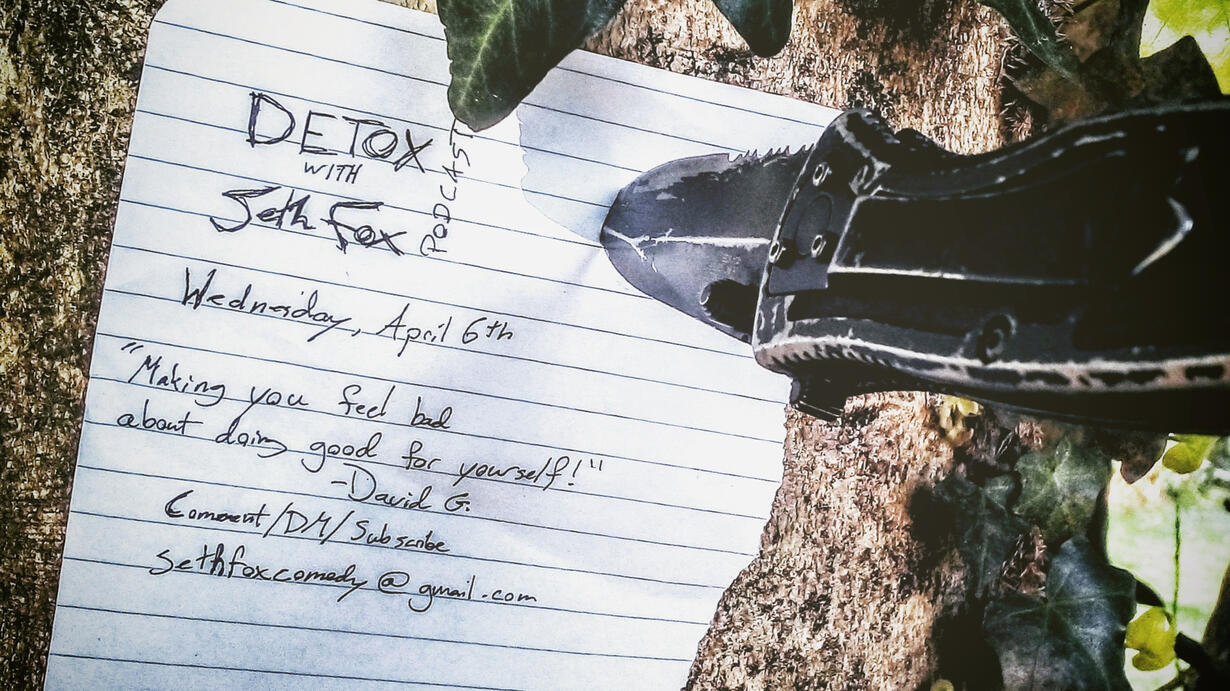 DETOX
WITH
Seth Fox
PODCAST
Wednesday, April 6th
"Making you feel bad
about doing good for yourself!"
-David G.
Comment/DM/Subscribe
sethfoxcomedy@gmail.com